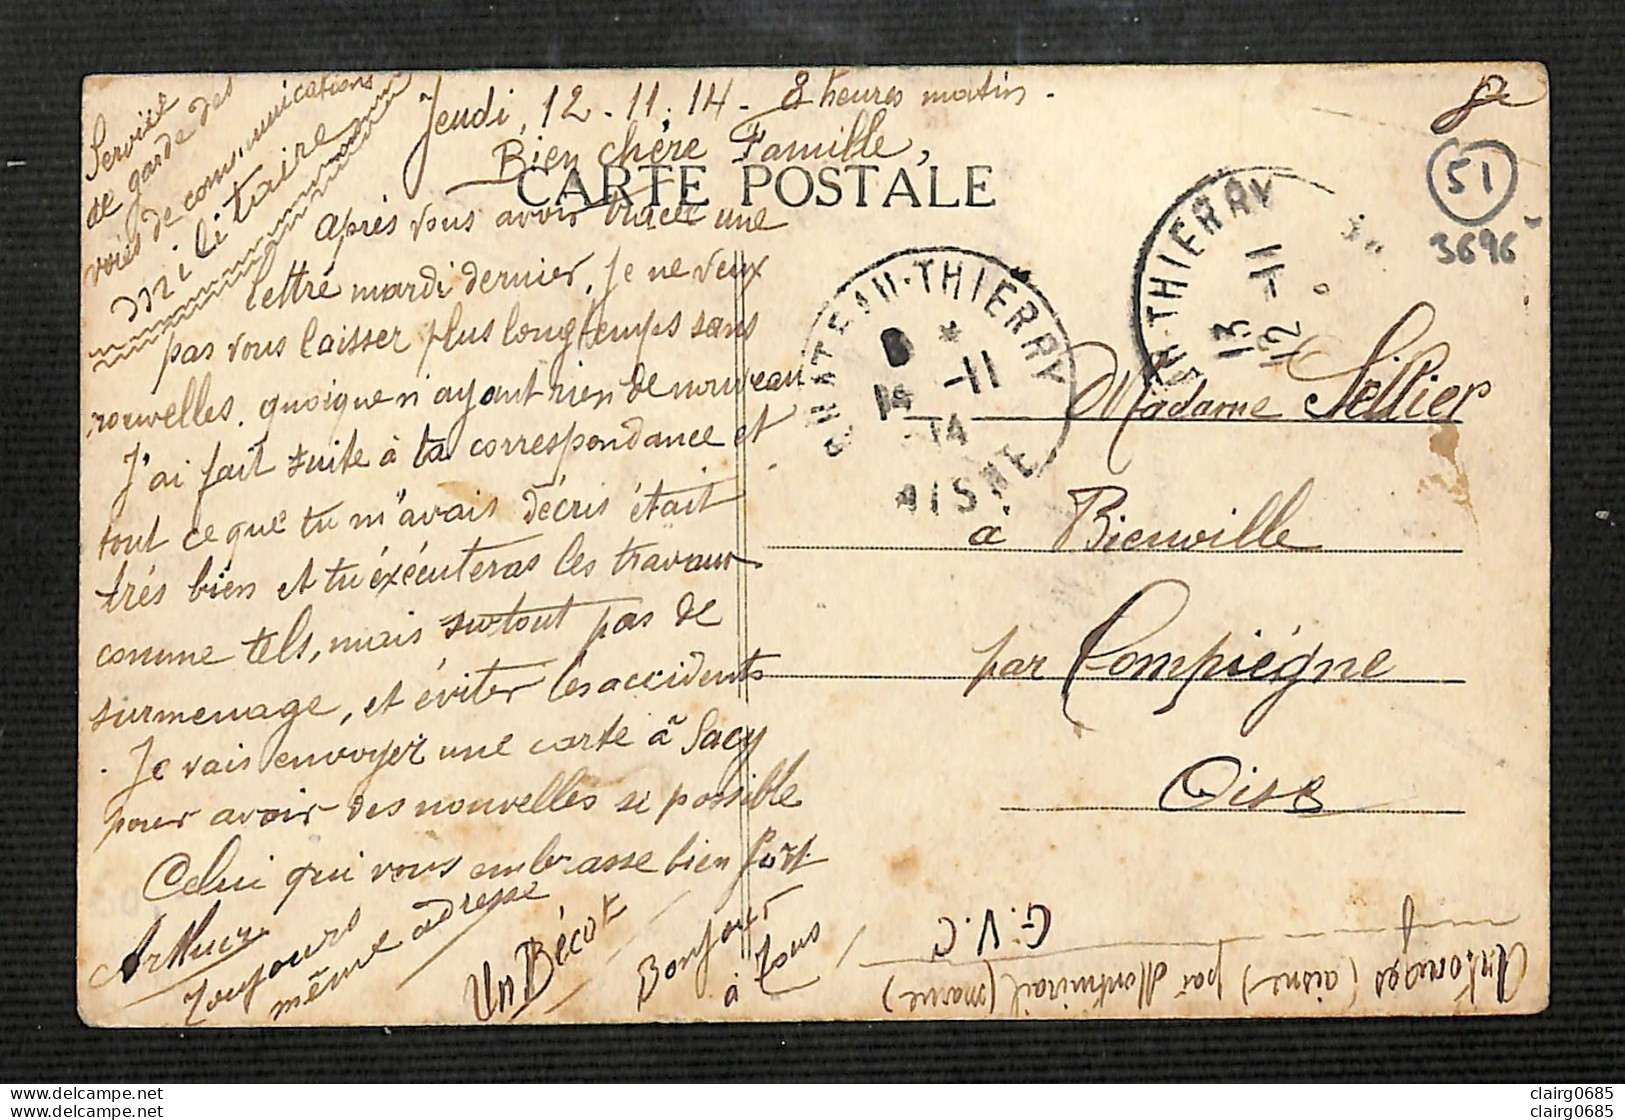 Service
de garde des
voies de communications
militaire
Jeudi, 12-11.14 - 8 heures matin.
Bien chère Famille,
CARTE POSTALE
après vous avoir tracer une
lettre mardi dernier, Je ne veux
pas vous laisser plus longtemps sans
nouvelles. quoique n'ayant rien de nouveau
J'ai fait suite à ta correspondance et
tout ce que tu m'avais décris était
trés bien et tu éxécuteras les travaux
comme tels, mais surtout pas de
surmenage, et éviter les accidents
. Je vais envoyer une carte à Sacy
pour avoir des nouvelles si possible
Celui qui vous embrasse bien fort.
Arthur
Toujours
même adresse
Un Bécot
Bonjour
à Tous
51
3696
CHATEAU-THIERRY
14 -11
14
AISNE
AU-THIERRY
13
12 -11
Madame Sellier
à Bienville
par Compiégne
Oise
G.V.C
(aisne) par Montmirail (marne)
clairg0685
clairg0685
clairg0685
clairg0685